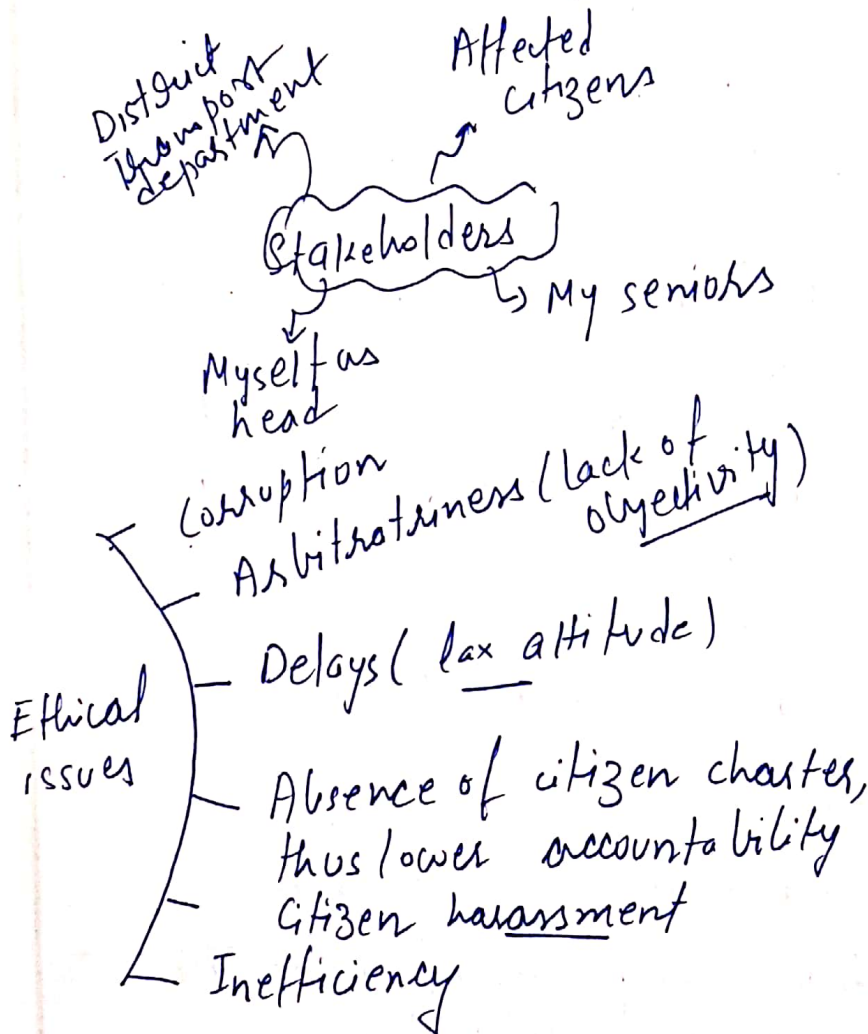 District
Transport
department
Affected
citizens
Stakeholders
My seniors
Myself as
head
Corruption
Arbitratriness (lack of
objectivity)
Delays ( lax attitude)
Ethical
issues
Absence of citizen charter,
thus lower accountability
Citizen harassment
Inefficiency